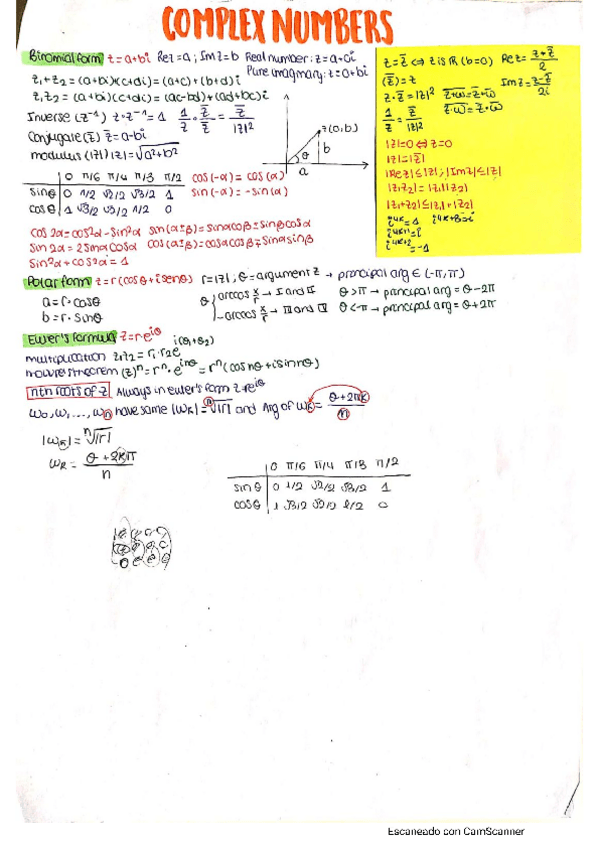 COMPLEX NUMBERS
Binomial form z = a+bi Re z = a ; Im z = b Real number: z = a+0i
Pure imaginary: z = 0+bi
z₁+z₂ = (a+bi)+(c+di) = (a+c)+(b+d)i
z₁z₂ = (a+bi)(c+di) = (ac-bd)+(ad+bc)i
Inverse (z⁻¹) z·z⁻¹ = 1 1/z · z̄/z̄ = z̄/|z|²
Conjugate (z̄) z̄ = a-bi
modulus (|z|) |z| = √a²+b²
z(a,b)
b
θ
a
0 π/6 π/4 π/3 π/2
sin θ 0 1/2 √2/2 √3/2 1
cos θ 1 √3/2 √2/2 1/2 0
cos(-α) = cos(α)
sin(-α) = -sin(α)
cos 2α = cos²α - sin²α sin(α±β) = sinα cosβ ± sinβ cosα
sin 2α = 2 sinα cosα cos(α±β) = cosα cosβ ∓ sinα sinβ
sin²α + cos²α = 1
z = z̄ ⇔ z is ℝ (b=0) Re z = z+z̄/2
(z̄) = z Im z = z-z̄/2i
z·z̄ = |z|² z+w = z̄+w̄
1/z = z̄/|z|² z·w = z̄·w̄
|z| = 0 ⇔ z = 0
|z| = |z̄|
|Re z| ≤ |z| ; |Im z| ≤ |z|
|z₁z₂| = |z₁||z₂|
|z₁+z₂| ≤ |z₁|+|z₂|
i⁴ᵏ = 1 i⁴ᵏ⁺³ = -i
i⁴ᵏ⁺¹ = i
i⁴ᵏ⁺² = -1
Polar form z = r(cosθ + i senθ) r = |z| ; θ = argument z → principal arg ∈ (-π, π)
a = r·cosθ θ { arccos x/r → I and II θ > π → principal arg = θ-2π
b = r·sinθ -arccos x/r → III and IV θ < -π → principal arg = θ+2π
Euler's formula z = r·e^iθ
multiplication z₁z₂ = r₁·r₂e^i(θ₁+θ₂)
moivre's theorem (z)ⁿ = rⁿ·e^inθ = rⁿ(cos nθ + i sin nθ)
nth roots of z Always in euler's form z = re^iθ
w₀, w₁, ..., wn have same |wk| = ⁿ√|r| and Arg of wk = θ+2πk/n
|wk| = ⁿ√|r|
wk = θ+2kπ/n
0 π/6 π/4 π/3 π/2
sin θ 0 1/2 √2/2 √3/2 1
cos θ 1 √3/2 √2/2 1/2 0
Escaneado con CamScanner